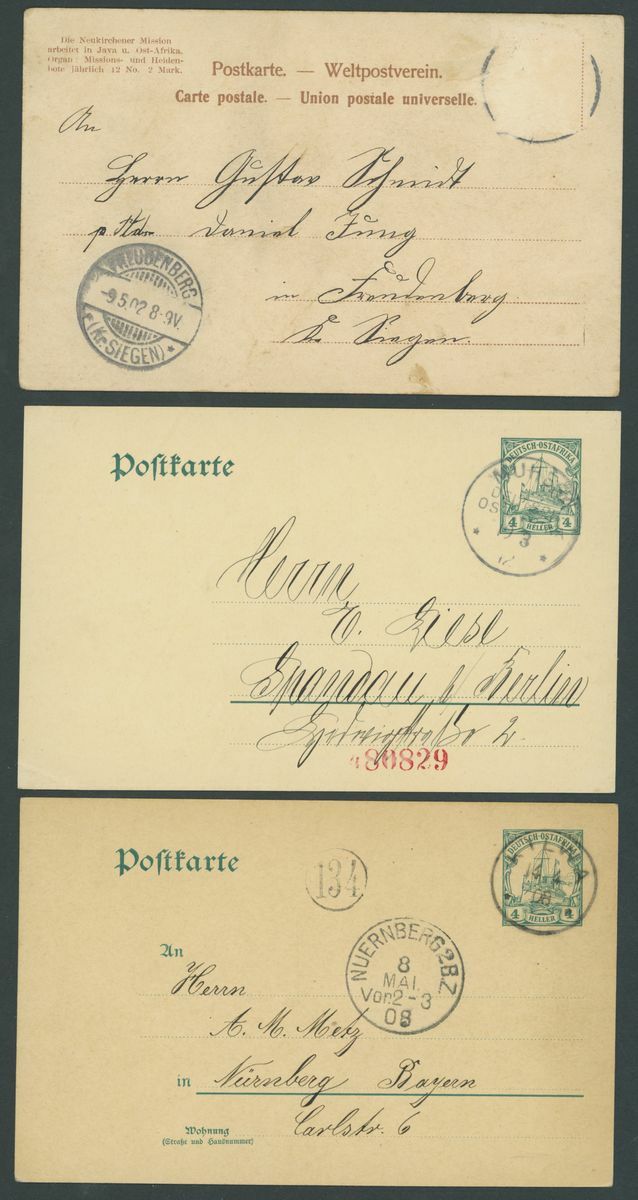 Die Neukirchener Mission
arbeitet in Java u. Ost-Afrika.
Organ: Missions- und Heiden-
bote jährlich 12 No. 2 Mark.
Postkarte. — Weltpostverein.
Carte postale. — Union postale universelle.
An
Herrn Gustav Schmidt
Daniel Jung
in Freudenberg
Kr. Siegen.
FREUDENBERG
-9.5.02 8-9V.
(Kr. SIEGEN)
Postkarte
DEUTSCH-OSTAFRIKA
4 HELLER 4
Herrn
E. Liese
Spandau b/ Berlin
2.
480829
Postkarte
134
DEUTSCH-OSTAFRIKA
4 HELLER 4
14 4
08
NUERNBERG 2 B.Z.
8
MAI.
Vor. 2-3
08
An
Herrn
A. M. Metz
in Nürnberg Bayern
Carlstr. 6
Wohnung
(Straße und Hausnummer)